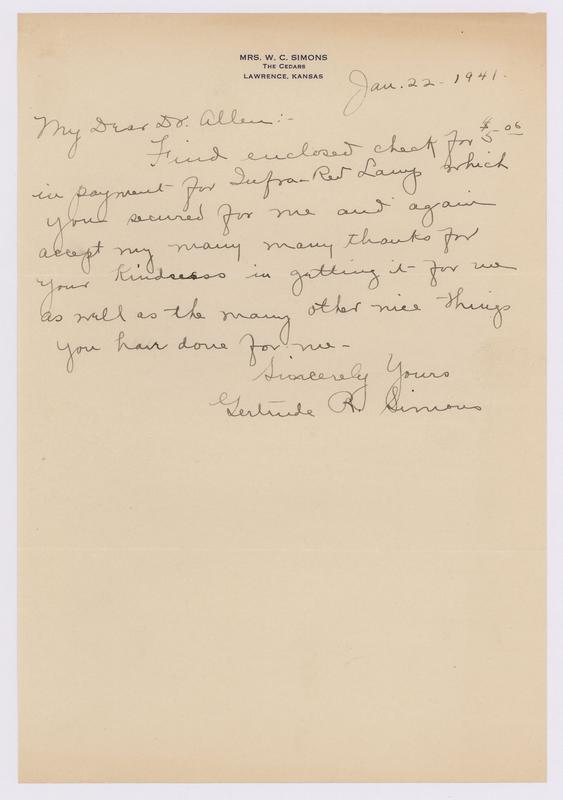 MRS. W. C. SIMONS
THE CEDARS
LAWRENCE, KANSAS
Jan. 22 - 1941.
My Dear Dr. Allen:-
Find enclosed check for $5.06
in payment for Infra-Red Lamp which
you secured for me and again
accept my many many thanks for
your kindness in getting it for me
as well as the many other nice things
you have done for me -
Sincerely Yours
Gertrude R. Simons